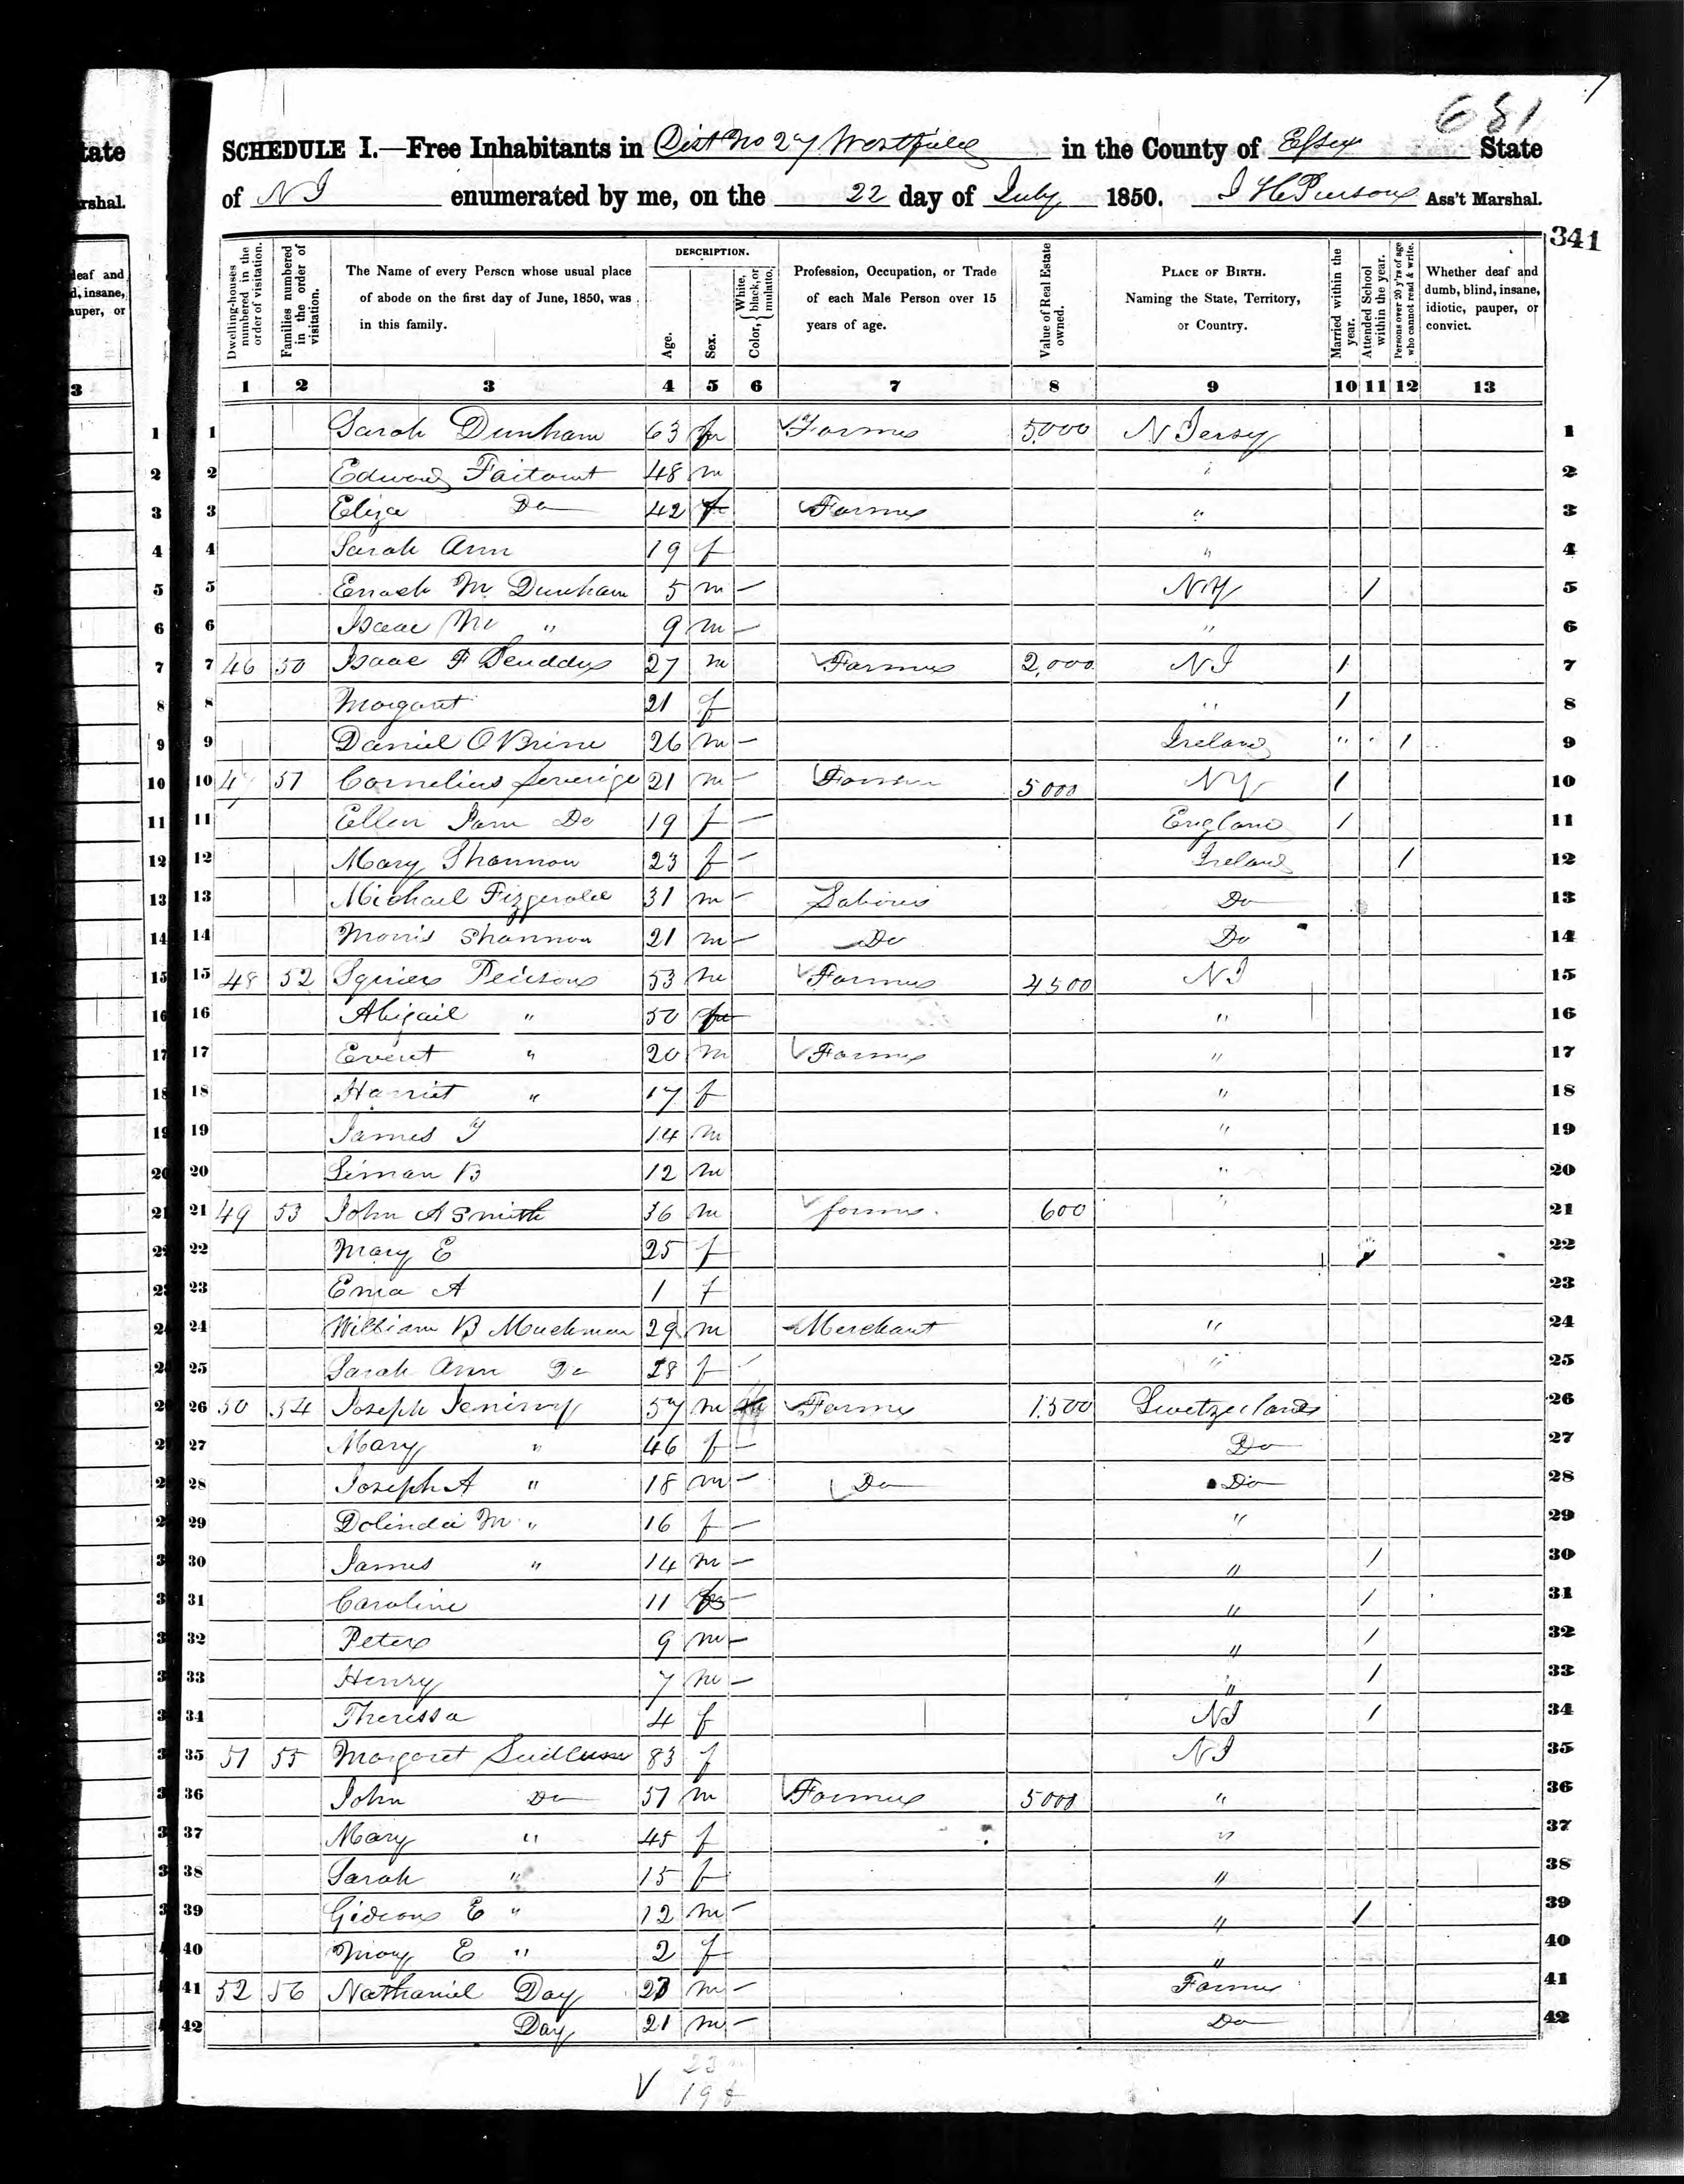 681
SCHEDULE I.—Free Inhabitants in Dist No 27 Westfield in the County of Essex State
of NJ enumerated by me, on the 22 day of July 1850. Ass't Marshal.
341
Dwelling-houses numbered in the order of visitation.
Families numbered in the order of visitation.
The Name of every Person whose usual place of abode on the first day of June, 1850, was in this family.
DESCRIPTION.
Age.
Sex.
Color, White, black, or mulatto.
Profession, Occupation, or Trade of each Male Person over 15 years of age.
Value of Real Estate owned.
PLACE OF BIRTH. Naming the State, Territory, or Country.
Married within the year.
Attended School within the year.
Persons over 20 y'rs of age who cannot read & write.
Whether deaf and dumb, blind, insane, idiotic, pauper, or convict.
1 2 3 4 5 6 7 8 9 10 11 12 13
1 Sarah Dunham 63 f Farmer 5000 N Jersy 1
2 Edward Faitout 48 m " 2
3 Eliza Do 42 f Farmer " 3
4 Sarah Ann 19 f " 4
5 Enoch M Dunham 5 m – NY 1 5
6 Isaac M " 9 m – " 6
7 46 50 Isaac F 27 m Farmer 2,000 NJ 1 7
8 Margaret 21 f " 1 8
9 Daniel OBrine 26 m – Ireland " " 1 9
10 51 Cornelius 21 m – Farmer 5000 NY 1 10
11 Ellen Do 19 f – England 1 11
12 Mary Shannon 23 f – Ireland 1 12
13 Michael Fizgerald 31 m – Do 13
14 Morris Shannon 21 m – Do Do 14
15 48 52 Squier 53 m Farmer 4500 NJ 15
16 Abigail " 50 f " 16
17 Everet " 20 m Farmer " 17
18 Harriet " 17 f " 18
19 James 14 m " 19
20 B 12 m " 20
21 49 53 John A Smith 36 m farmer 600 " 21
22 Mary E 25 f 22
23 Ema A 1 f 23
24 William B Muchmon 29 m Merchant " 24
25 Sarah Ann Do 28 f " 25
26 50 54 Joseph 57 m Farmer 1,500 26
27 Mary " 46 f – Do 27
28 Joseph A " 18 m – Do Do 28
29 Dolinda M " 16 f – " 29
30 James " 14 m – " 1 30
31 Caroline 11 f – " 1 31
32 Peter 9 m – " 1 32
33 Henry 7 m – " 1 33
34 Theressa 4 f NJ 1 34
35 51 55 Margaret 83 f NJ 35
36 John Do 51 m Farmer 5000 " 36
37 Mary " 45 f " 37
38 Sarah " 15 f " 38
39 Gideon E " 12 m – " 1 39
40 Mary E " 2 f " 40
41 52 56 Nathaniel Day m – Farmer 41
42 Day 21 m – Do 42
23
19 f